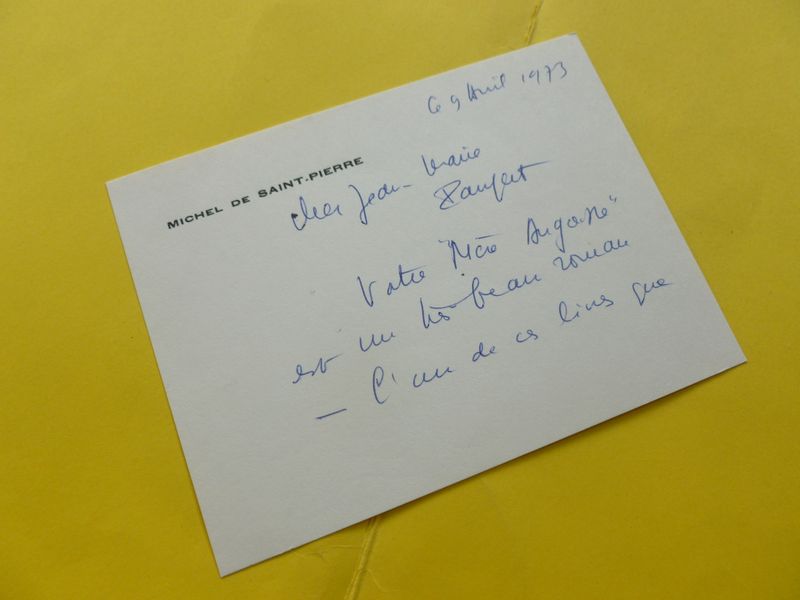 ce 9 Avril 1973
MICHEL DE SAINT-PIERRE
Cher Jean-Marie
Votre "Mère
est un très beau roman
— l'un de ces livres que